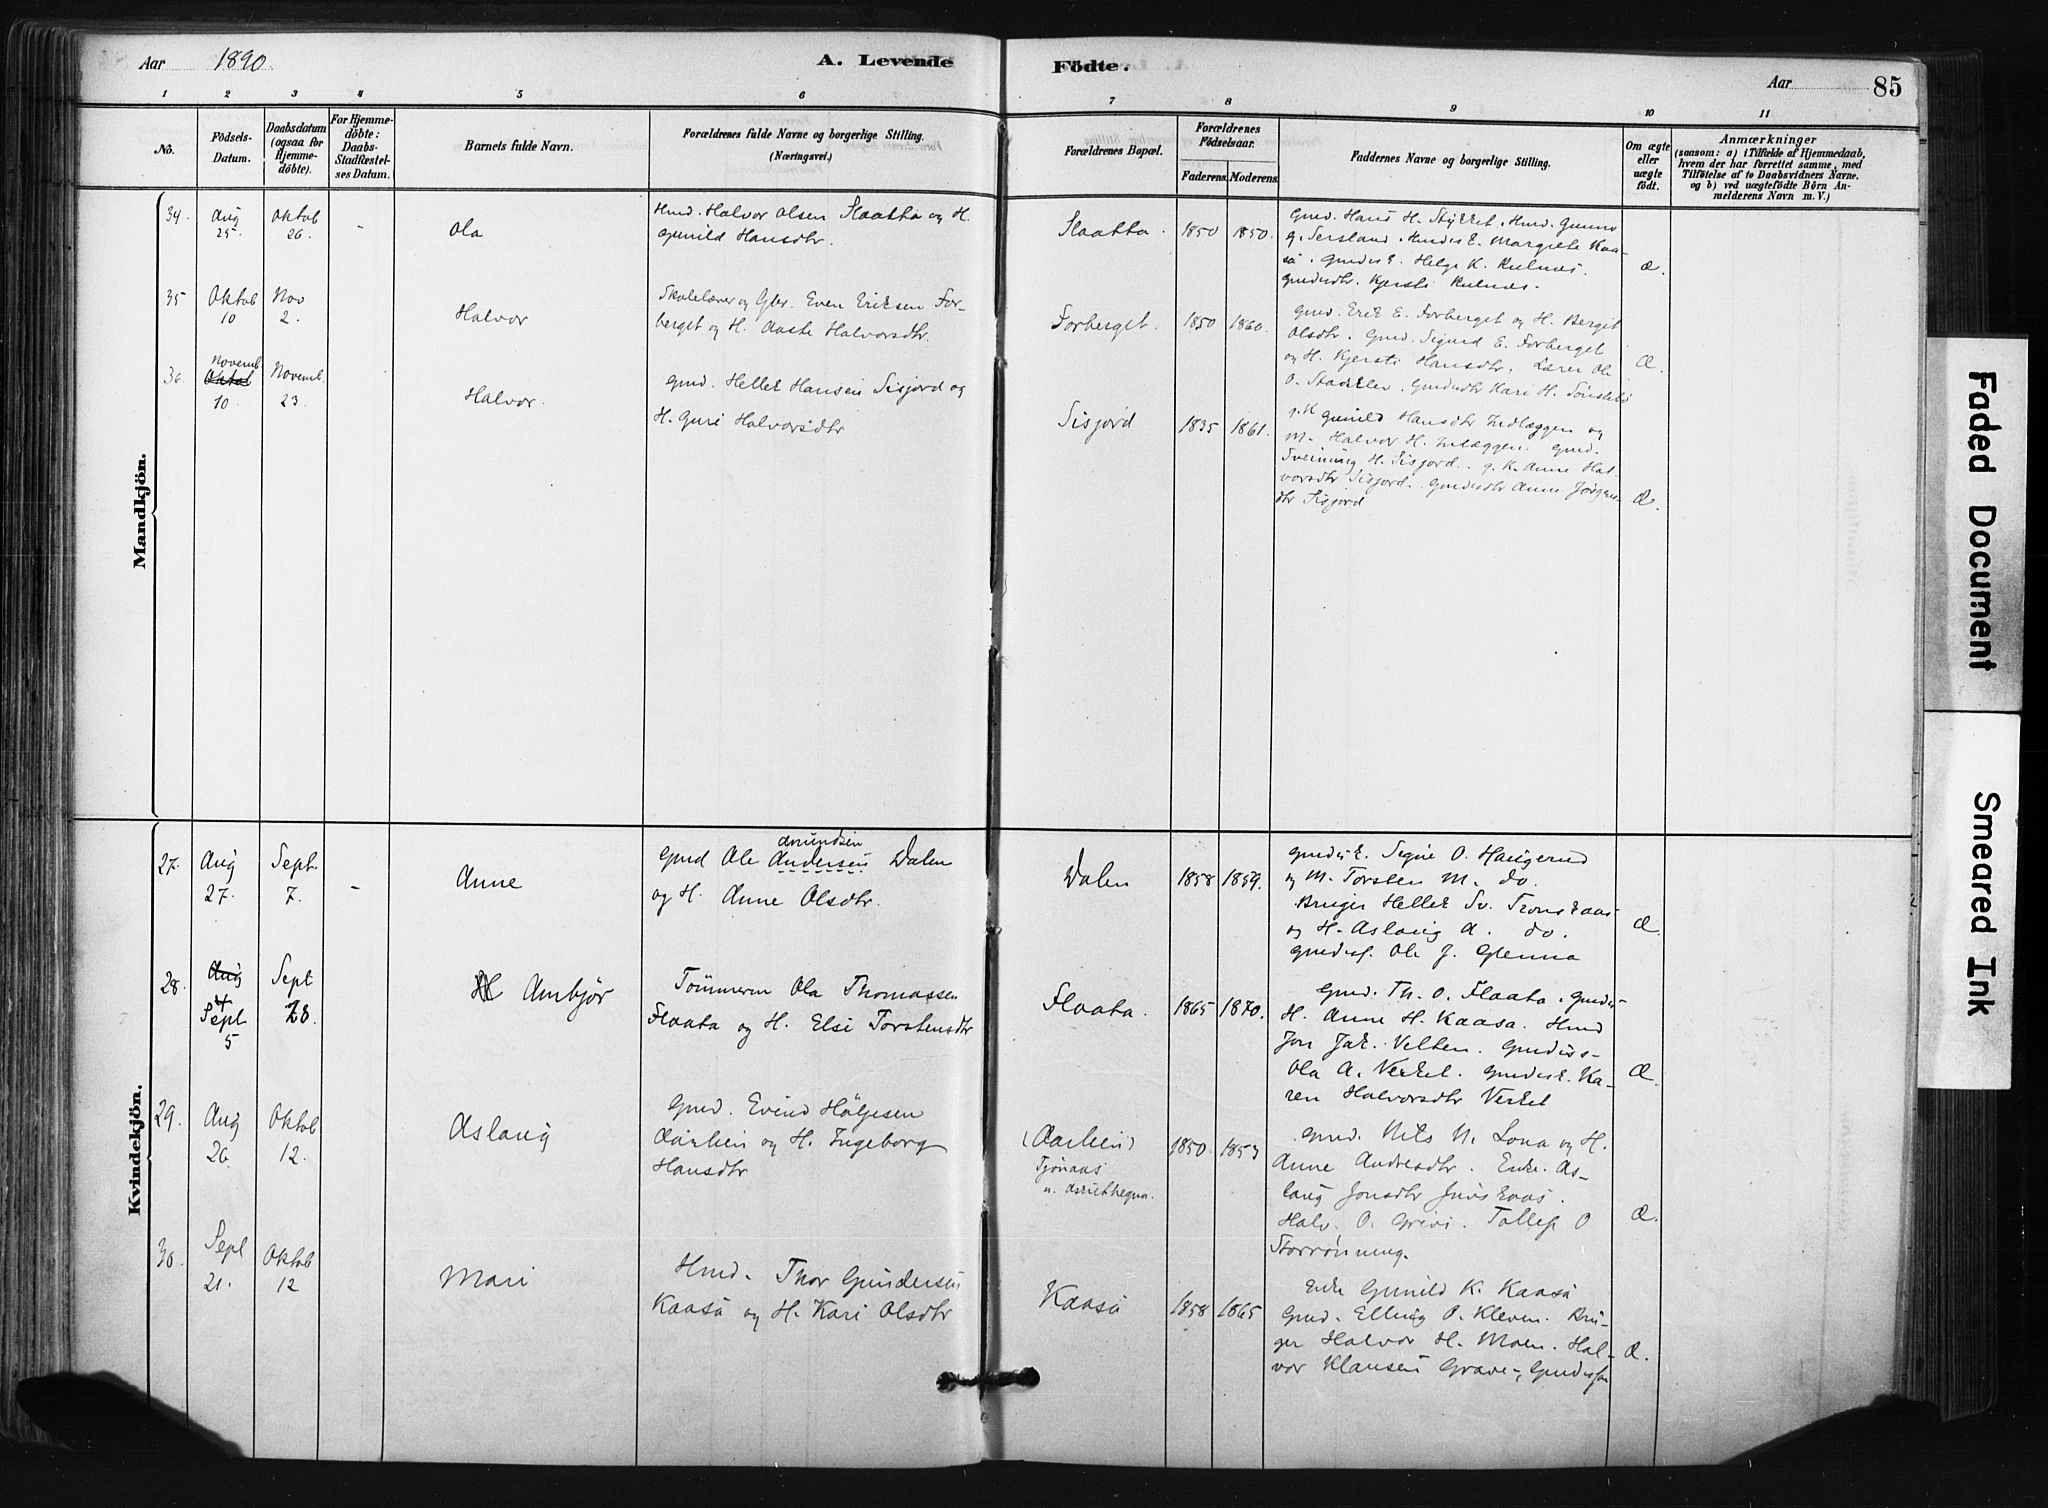 Aar 1890.
A. Levende Födte.
Aar 85
1 2 3 4 5 6 7 8 9 10 11
No.
Födsels-Datum.
Daabsdatum (ogsaa for Hjemme-döbte).
For Hjemme-döbte: Daabs-Stadfæstel-ses Datum.
Barnets fulde Navn.
Forældrenes fulde Navne og borgerlige Stilling.
(Næringsvei.)
Forældrenes Bopæl.
Forældrenes Födselsaar.
Faderens. Moderens.
Faddernes Navne og borgerlige Stilling.
Om ægte eller uægte födt.
Anmærkninger
(saasom: a) i Tilfælde af Hjemmedaab,
hvem der har forrettet samme, med
Tilföielse af to Daabsvidners Navne.
og b) ved uægtefödte Börn An-
melderens Navn m. V.)
Mandkjön.
34. Aug 25. Oktob 26. - Ola
Hmd. Halvor Olsen Slaatta og H.
Gunild Hansdtr.
Slaatta. 1850 1850.
Gmd. Hans H. Stykket. Hmd. Gunno
G. Sersland. Hmdsk. Margrete Kaa-
sa. Gmdsk. Helge K. Rulnes.
Gmdsdtr. Kjersti Rulnes.
Æ.
35 Oktob 10 Nov 2. Halvor
Skolelærer og Gbr. Even Eriksen For-
berget og H. Aaste Halvorsdtr.
Forberget. 1850 1860.
Gmd. Erik E. Forberget og H. Bergit
Olsdtr. Gmd. Sigurd E. Forberget
og H. Kjersti Hansdtr. Lærer Ole
O. Stadklev. Gmdsdtr Kari H. Sønstebø
Æ.
36. Novemb. Oktob 10. Novemb. 23. Halvor.
Gmd. Hellek Hansen Sisjord og
H. Guri Halvorsdtr
Sisjord 1835 1861.
g. K. Gunild Hansdtr Indlæggen og
M. Halvor H. Inlæggen. Gmd.
Sveinung H. Sisjord. g. K. Anne Hal-
vorsdtr Sisjord. Gmdsdtr Anne Jørgens-
dtr Sisjord
Æ.
Kvindekjön.
27. Aug 27. Sept. 7. - Anne
Amundsen
Gmd Ole Andersen Dalen
og H. Anne Olsdtr.
Dalen 1858 1859.
Gmdsk. Signe O. Haugerud
og M. Torsten M. do.
Bruger Hellek Sv. Tronskaas
og H. Aslaug A. do.
Gmdss. Ole J. Glenna
Æ.
28. Aug Sept 5 Sept 28. Ambjør
Tømmerm Ola Thomassen
Flaata og H. Elsi Torstensdtr
Flaata. 1865 1870.
Gmd. Th. O. Flaata. Gmds-
H. Anne H. Kaasa. Hmd
Jon Jak. Velten. Gmdss-
Ola A. Verket. Gmdsk. Ka-
ren Halvorsdtr Verket
Æ.
29. Aug 26. Oktob 12. Aslaug
Gmd. Evind Hølgesen
Aarlien og H. Ingeborg
Hansdtr
(Aarlien)
Tjønaas
1850. 1853
Gmd. Nils N. Lona og H.
Anne Andresdtr. Enke. As-
laug Jonsdtr Juvskaas.
Halv. O. Grivi. Tollef O
Storrønning.
Æ.
30. Sept 21. Oktob 12 Mari
Hmd. Thor Gundersen
Kaasa og H. Kari Olsdtr
Kaasa 1858 1865
Enke Gunild K. Kaasa
Gmd. Elling O. Kleven. Bru-
ger Halvor H. Moen. Hal-
vor Klausen Grave-, Gmdsson
Æ.
Faded Document
Smeared Ink